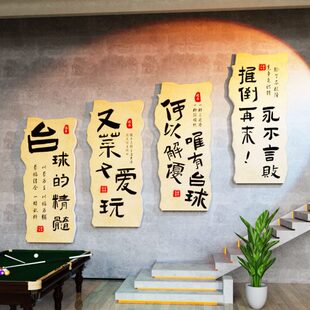 台球的精髓
又菜又爱玩
何以解憂
唯有台球
推倒再来！
永不言敗